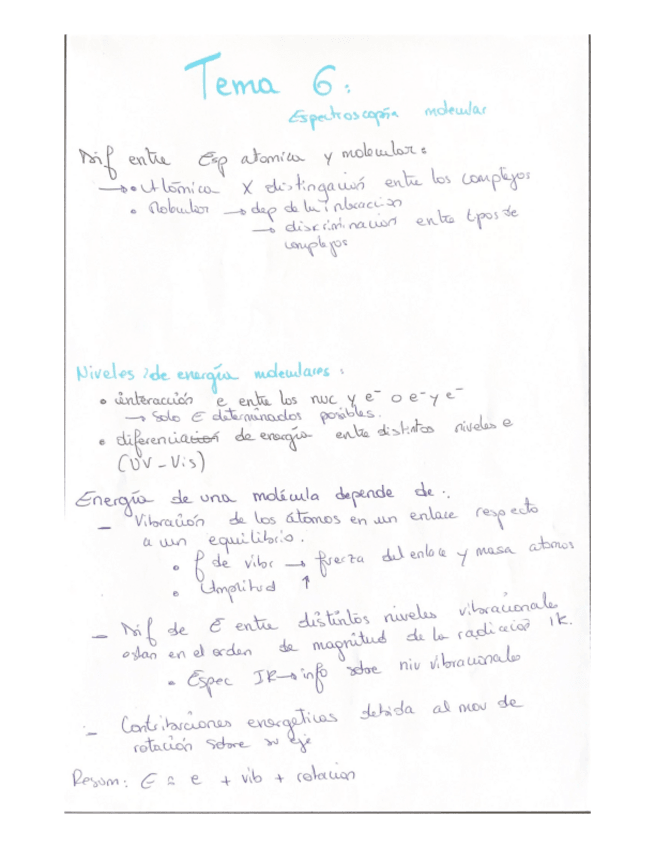 Tema 6:
Espectroscopía molecular
Dif entre Esp atomica y molecular:
→ • Atómica X distingación entre los complejos
• Molecular → dep de la interacción
→ discriminación entre tipos de
complejos
Niveles de energía moleculares:
• interacción e entre los nuc y e⁻ o e⁻ y e⁻
→ Solo E determinados posibles.
• diferencia de energía entre distintos niveles e
(UV - Vis)
Energía de una molécula depende de:
– Vibración de los átomos en un enlace respecto
a un equilibrio.
• f de vibr → fuerza del enlace y masa atomos
• Amplitud ↑
– Dif de E entre distintos niveles vibracionale
estan en el orden de magnitud de la radiación IR.
• Espec IR → info sobre niv vibracionales
– Contribuciones energeticas debida al mov de
rotación sobre su eje
Resum: E = e + vib + rotación